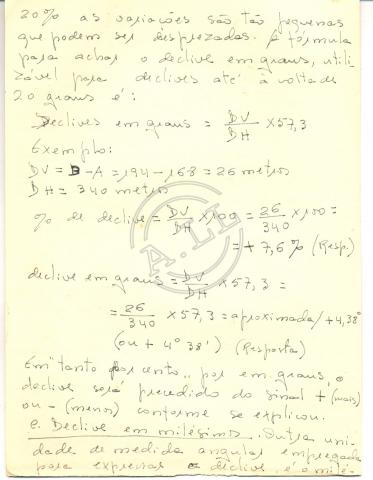 20% as variações são tão pequenas
que podem ser desprezadas. A fórmula
para achar o declive em graus, utili-
zável para declives até à volta de
20 graus é:
Declives em graus = DV/DH × 57,3
Exemplo:
DV = B-A = 194 - 168 = 26 metros
DH = 340 metros
% de declive = DV/DH × 100 = 26/340 × 100 =
= + 7,6 % (Resp.)
declive em graus = DV/DH × 57,3 =
= 26/340 × 57,3 = aproximada/ + 4,38°
(ou + 4° 38') (Resposta)
Em "tanto por cento", por em graus, o
declive será precedido do sinal + (mais)
ou - (menos) conforme se explicou.
e. Declive em milésimos. Outra uni-
dade de medida angular empregada
para expressar o declive, é o milé-
A.LI